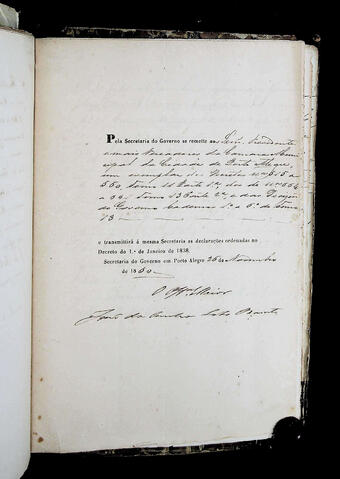 Pela Secretaria do Governo se remette aos Senr. Presidente
e mais Vereadores da Camara Muni-
cipal da Cidade de Porto Alegre,
um exemplar de
560, tomo 11 Parte 1ª, dos de nos 554
a tomo 13 Parte 2ª e das
do Governo Caderno 1º a 6º do tomo
13
e transmittirá á mesma Secretaria as declarações ordenadas no
Decreto do 1.º de Janeiro de 1838.
Secretaria do Governo em Porto Alegre 26 de Novembro
de 1850
O Offal Maior
João da Cunha Lobo Barreto